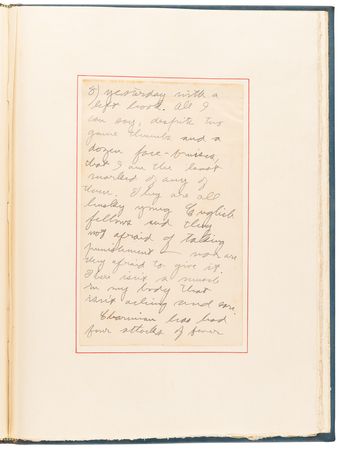 8) yesterday with a
left hook. All I
can say, despite two
game thumbs and a
dozen face-bruises,
that I am the least
marked of any of
them. They are all
husky young English
fellows and they
not afraid of taking
punishment — nor are
they afraid to give it.
There isn't a muscle
in my body that
isn't aching and sore.
Charmian has had
four attacks of fever